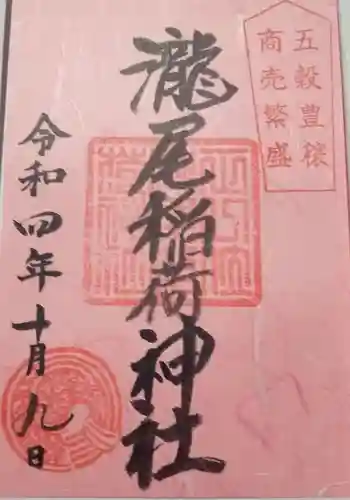 五穀豊穣
商売繁盛
瀧尾稲荷神社
令和四年十月九日